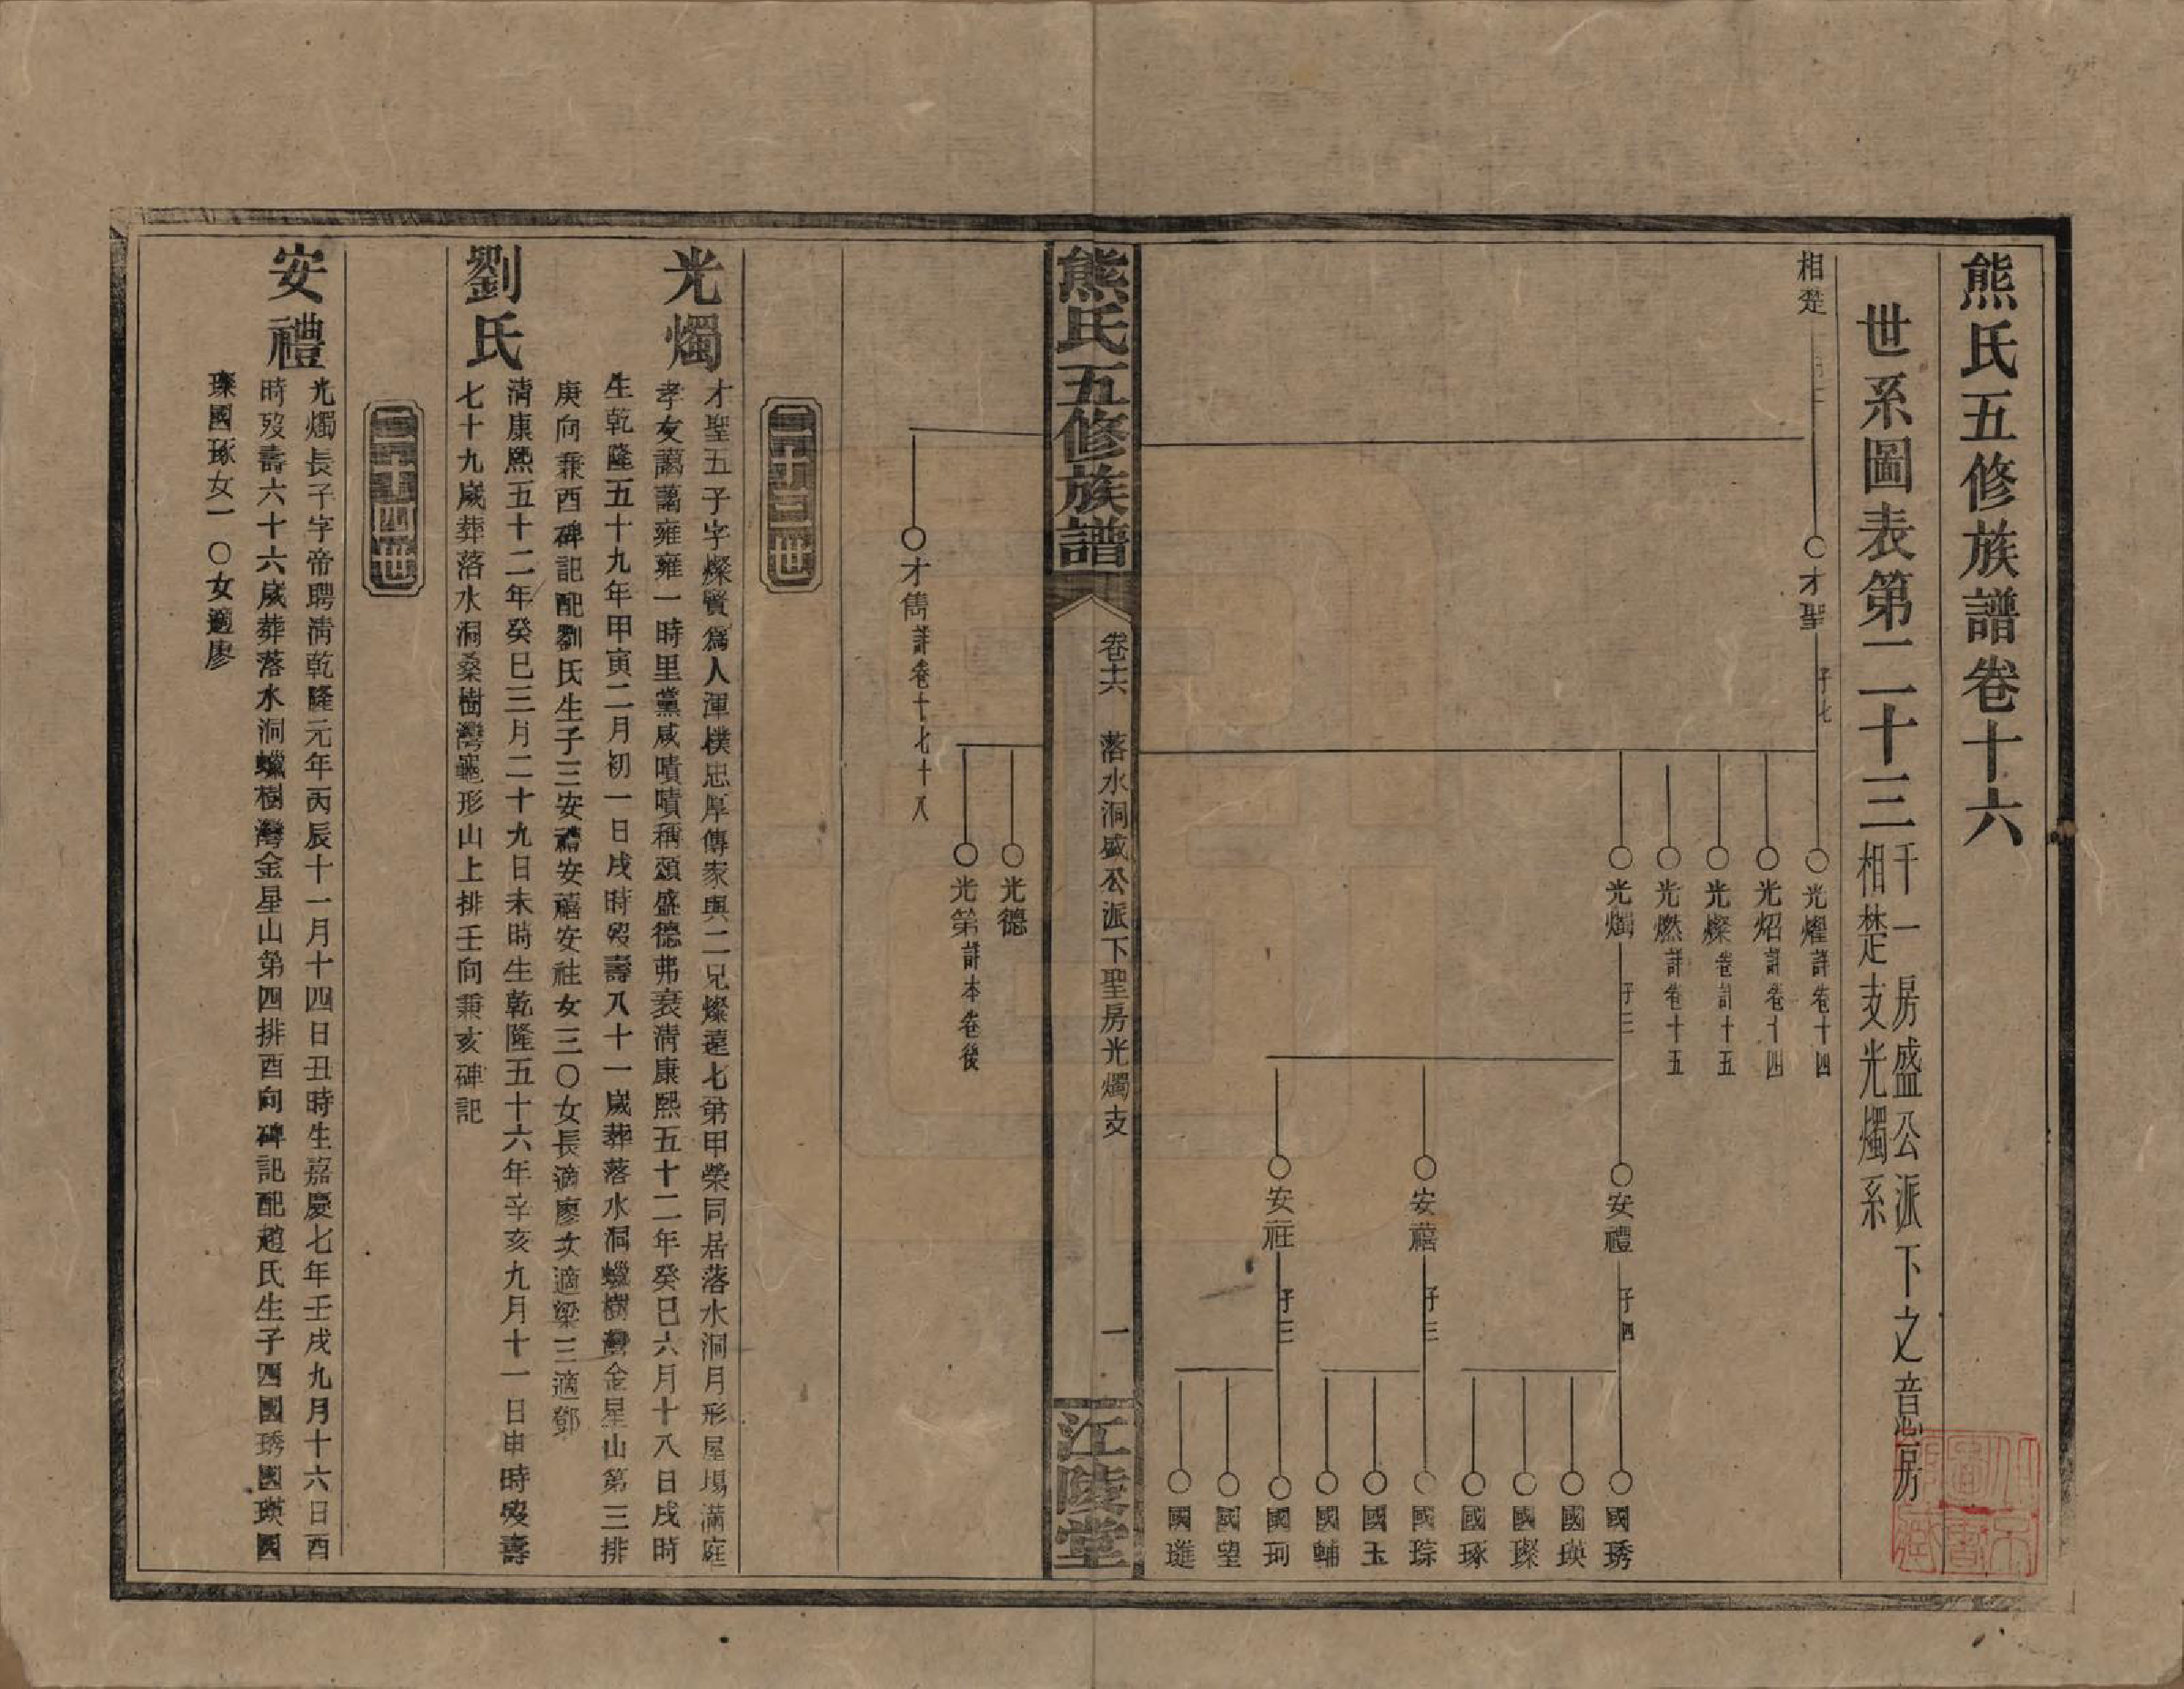 熊氏五修族譜卷十六
世系圖表第二十三
千一房盛公派下之意房
相楚支光燭系
相楚
才聖
子七
光燿詳卷十四
光炤詳卷十四
光燦卷詳十五
光燃詳卷十五
光燭
子三
安禮
子四
國琇
國瑛
國璨
國琢
安禧
子三
國琮
國玉
國輔
安社
子三
國珂
國望
國璡
熊氏五修族譜
卷十六
落水洞盛公派下聖房光燭支
一
江陵堂
光德
光第詳本卷後
才雋詳卷十七十八
二十三世
光燭
才聖五子字燦賢爲人渾樸忠厚傳家與二兄燦遠七弟甲榮同居落水洞月形屋場滿庭
孝友藹藹雍雍一時里黨咸嘖嘖稱頌盛德弗衰清康熙五十二年癸巳六月十八日戌時
生乾隆五十九年甲寅二月初一日戌時歿壽八十一歲葬落水洞蠟樹灣金星山第三排
庚向兼酉碑記配劉氏生子三安禮安禧安社女三〇女長適廖次適梁三適鄧
劉氏
清康熙五十二年癸巳三月二十九日未時生乾隆五十六年辛亥九月十一日申時歿壽
七十九歲葬落水洞桑樹灣龜形山上排壬向兼亥碑記
二十四世
安禮
光燭長子字帝聘清乾隆元年丙辰十一月十四日丑時生嘉慶七年壬戌九月十六日酉
時歿壽六十六歲葬落水洞蠟樹灣金星山第四排酉向碑記配趙氏生子四國琇國瑛國
璨國琢女一〇女適廖